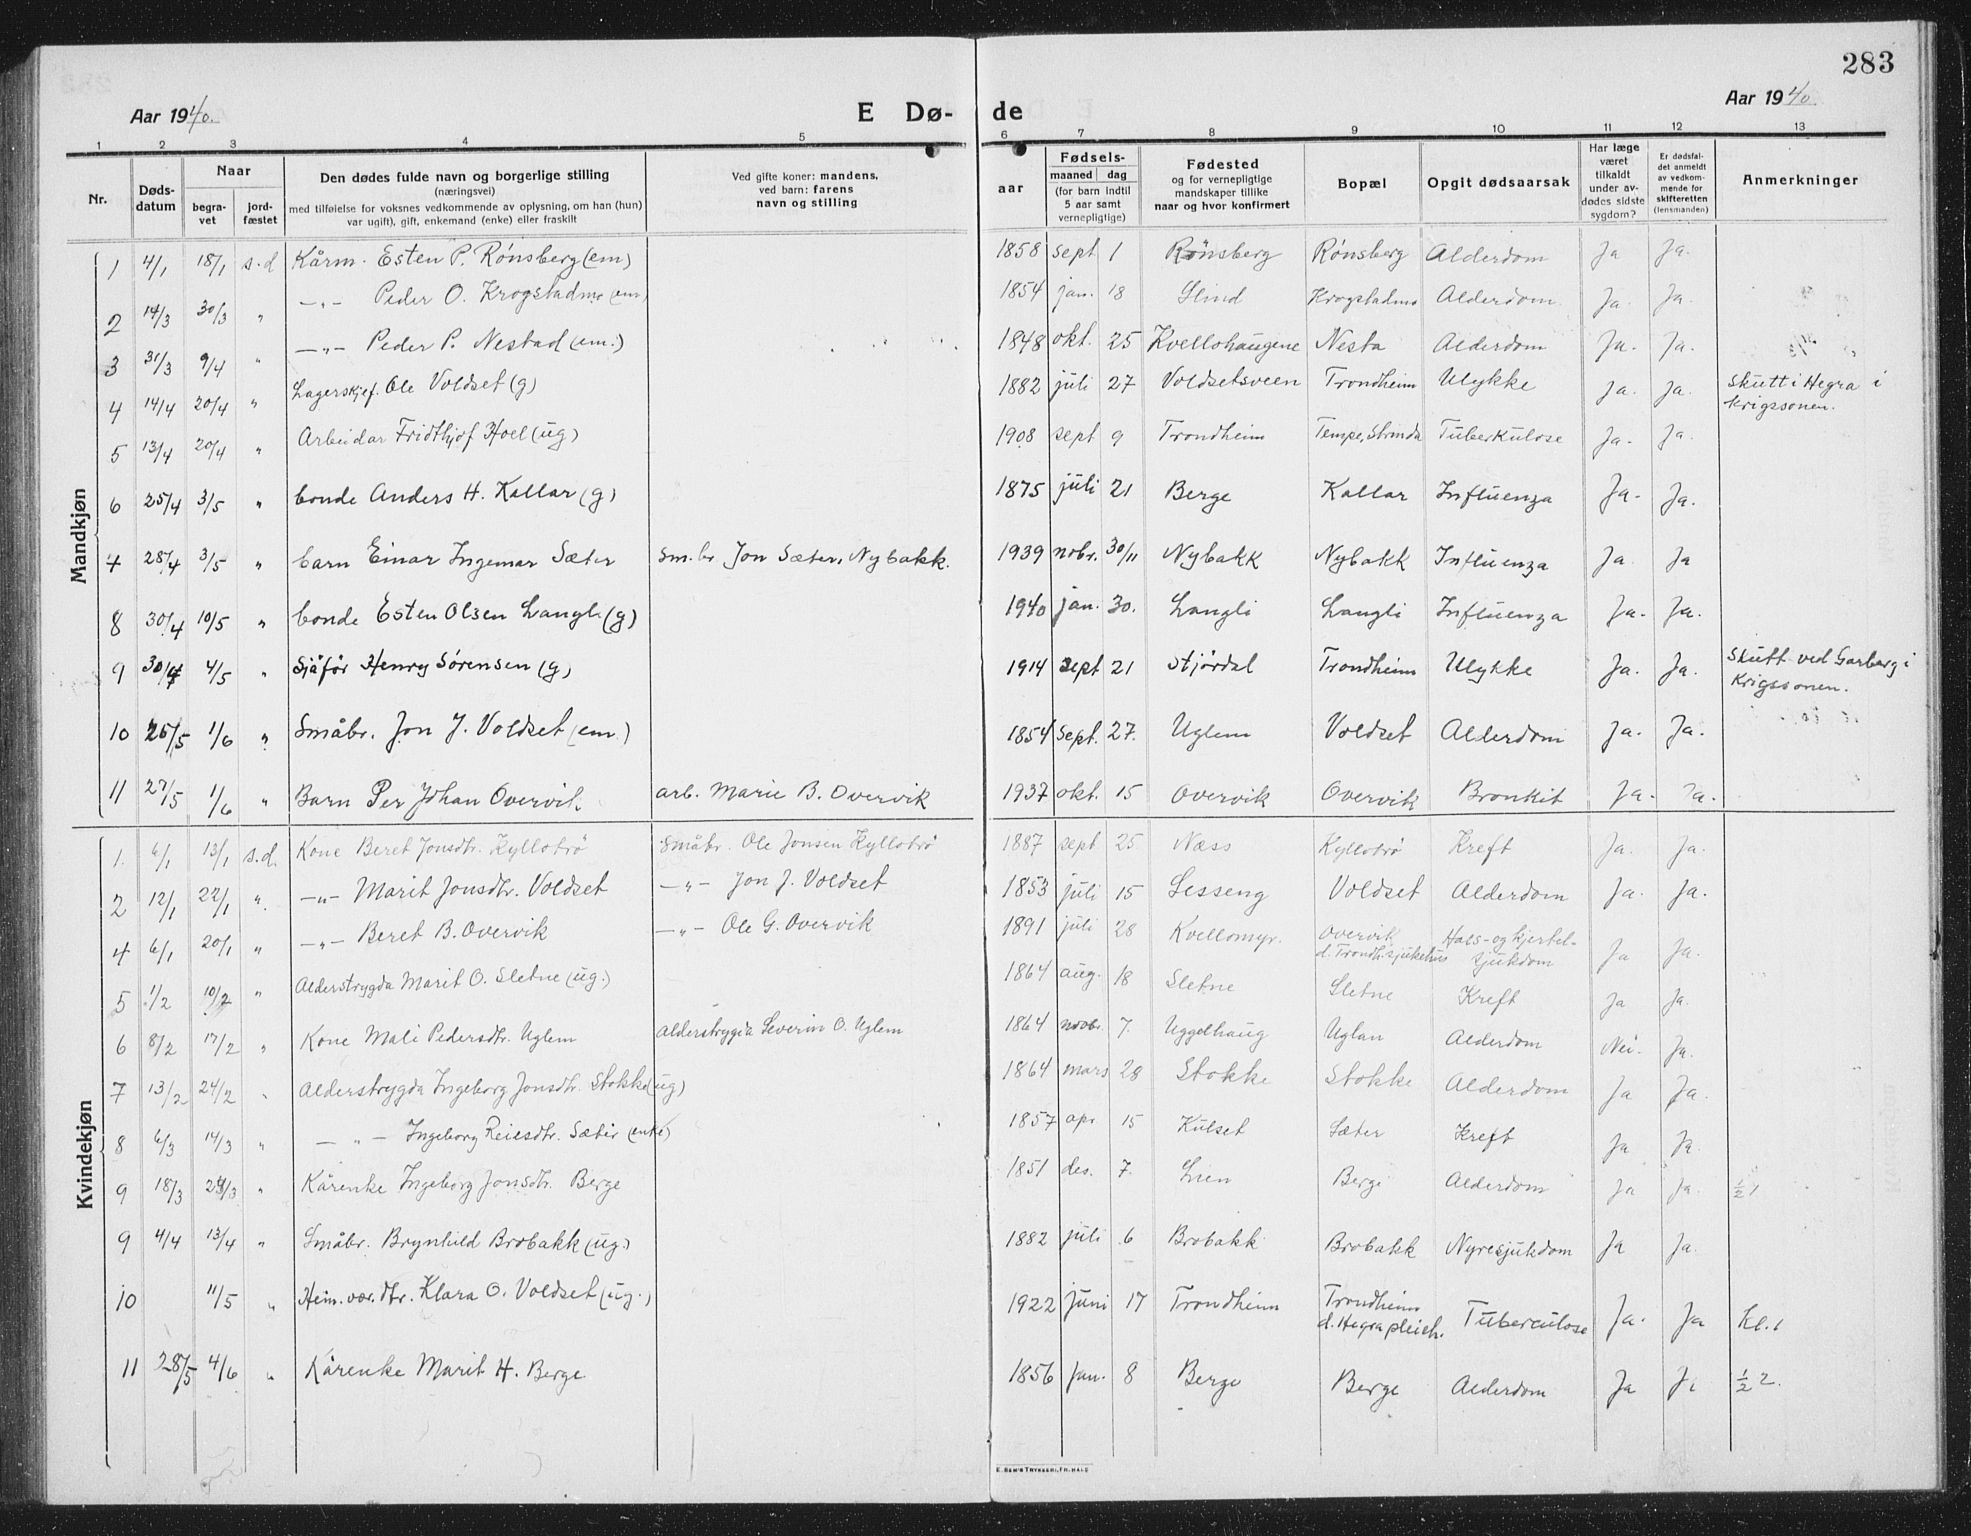 283
Aar 1940.
E Dø- de
Aar 1940.
1 2 3 4 5 6 7 8 9 10 11 12 13
Nr.
Døds-
datum
Naar
begra-
vet
jord-
fæstet
Den dødes fulde navn og borgerlige stilling
(næringsvei)
med tilføielse for voksnes vedkommende av oplysning, om han (hun)
var ugift), gift, enkemand (enke) eller fraskilt
Ved gifte koner: mandens,
ved barn: farens
navn og stilling
Fødsels-
aar
maaned dag
(for barn indtil
5 aar samt
vernepligtige)
Fødested
og for vernepligtige
mandskaper tillike
naar og hvor konfirmert
Bopæl
Opgit dødsaarsak
Har læge
været
tilkaldt
under av-
dødes sidste
sygdom?
Er dødsfal-
det anmeldt
av vedkom-
mende for
skifteretten
(lensmanden)
Anmerkninger
Mandkjøn
1 4/1 18/1 s.d Kårm. Esten P. Rönsberg (em) 1858 sept 1 Rönsberg Rönsberg Alderdom Ja Ja.
2 14/3 30/3 " —"— Peder O. Krogstadmo (em) 1854 jan. 18 Slind Krogstadmo Alderdom. Ja. Ja.
3 31/3 9/4 " —"— Peder P. Nestad (em.) 1848 okt. 25 Kvellohaugene Nesta Alderdom Ja. Ja.
4 14/4 20/4 " Lagerskjef. Ole Voldset (g) 1882 juli 27 Voldsetsveen Trondheim Ulykke Ja. Ja. Skutt i Hegra i
krigssonen.
5 13/4 20/4 " Arbeidar Fridthjof Hoel (ug) 1908 sept 9 Trondheim Tempe, Strinda Tuberkulose Ja. Ja.
6 25/4 3/5 " bonde Anders H. Kallar (g) 1875 juli 21 Berge Kallar Influenza Ja. Ja.
7 28/4 3/5 " barn Einar Ingemar Sæter Sm.br Jon Sæter, Nybakk. 1939 nobr. 30/11 Nybakk Nybakk Influenza Ja. Ja
8 30/4 10/5 " bonde Esten Olsen Langli (g) 1940 jan. 30. Langli Langli Influenza Ja. Ja.
9 30/4 4/5 " Sjåför Henry Sörensen (g) 1914 sept 21 Stjördal Trondheim Ulykke Ja. Ja. Skutt ved Garberg i
Krigssonen.
10 26/5 1/6 " Småbr. Jon J. Voldset (em.) 1854 sept. 27. Uglem Voldset Alderdom Ja. Ja.
11 27/5 1/6 " Barn Per Johan Overvik arb. Marie B. Overvik 1937 okt. 15 Overvik Overvik Bronkit Ja. Ja.
Kvindekjøn
1. 6/1 13/1 s.d. Kone Beret Jonsdtr. Kyllotrö Småbr. Ole Jonsen Kyllotrö 1887 sept 25 Næss Kyllotrö Kreft Ja. Ja.
2 12/1 22/1 " —"— Marit Jonsdtr. Voldset —"— Jon J. Voldset 1853 juli 15 Lesseng Voldset Alderdom Ja. Ja.
4 6/1 20/1 " —"— Beret B. Overvik —"— Ole G. Overvik 1891 juli 28 Kvellomyr. Overvik
d. Trondh. sjukehus Hals- og kjertel-
sjukdom Ja Ja.
5 1/2 10/2 " Alderstrygda Marit O. Sletne (ug.) 1864 aug. 18 Sletne Sletne Kreft Ja Ja.
6 8/2 17/2 " Kone Mali Pedersdtr. Uglem alderstrygda Severin O. Uglem 1864 novbr. 7. Uggelhaug Uglan Alderdom Nei. Ja.
7 13/2 24/2 " Alderstrygda Ingeborg Jonsdtr. Stokke (ug) 1864 mars 28 Stokke Stokke Alderdom Ja Ja.
8 6/3 14/3 " —"— Ingeborg Reiesdtr. Sæter (enke) 1857 apr 15 Kulset Sæter Kreft Ja Ja
9 18/3 28/3 " Kårenke Ingeborg Jonsdtr. Berge 1851 des. 7. Lien Berge Alderdom Ja Ja. ½ 1
9 4/4 13/4 " Småbr. Brynhild Brobakk (ug.) 1882 juli 6 Brobakk Brobakk Nyresjukdom Ja Ja.
10 11/5 " Heim.vær. dtr. Klara O. Voldset (ug.) 1922 juni 17 Trondheim Trondheim
d. Hegra pleieh. Tuberculose Ja. Ja Kl. 1
11 28/5 4/6 " Kårenke Marit H. Berge 1856 jan. 8 Berge Berge Alderdom Ja Ja ½ 2.
E. SEM'S TRYKKERI, FR.HALD